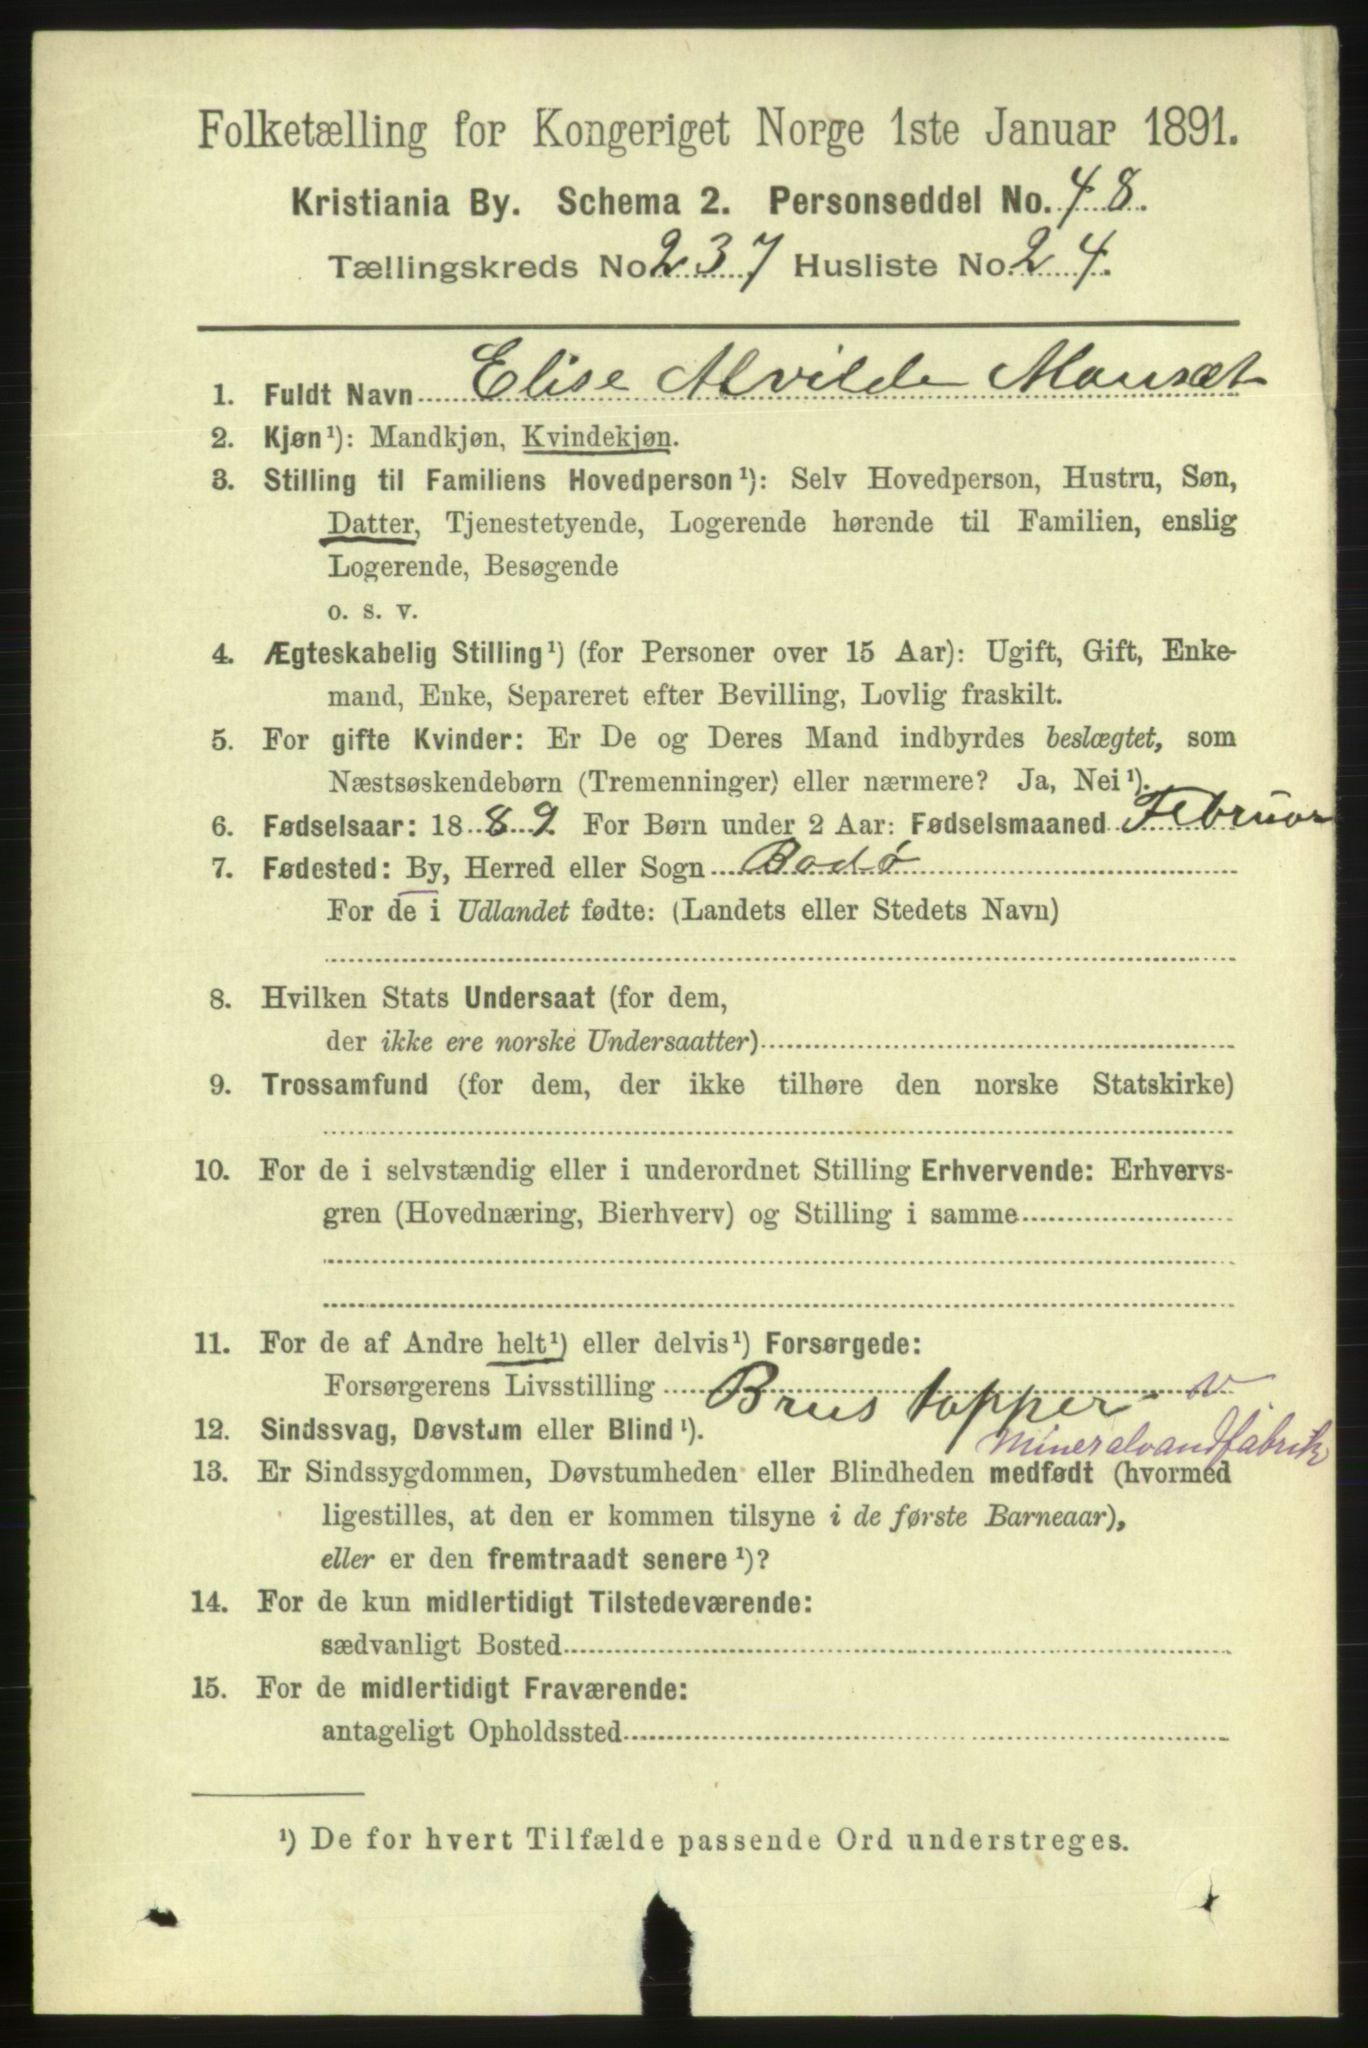 Folketælling for Kongeriget Norge 1ste Januar 1891.
Kristiania By. Schema 2. Personseddel No. 48.
Tællingskreds No 237 Husliste No. 24.
1. Fuldt Navn Elise Alvilde Mansæt
2. Kjøn¹): Mandkjøn, Kvindekjøn.
3. Stilling til Familiens Hovedperson¹): Selv Hovedperson, Hustru, Søn,
Datter, Tjenestetyende, Logerende hørende til Familien, enslig
Logerende, Besøgende
o. s. v.
4. Ægteskabelig Stilling¹) (for Personer over 15 Aar): Ugift, Gift, Enke-
mand, Enke, Separeret efter Bevilling, Lovlig fraskilt.
5. For gifte Kvinder: Er De og Deres Mand indbyrdes beslægtet, som
Næstsøskendebørn (Tremenninger) eller nærmere? Ja, Nei¹).
6. Fødselsaar: 1889 For Børn under 2 Aar: Fødselsmaaned Februar
7. Fødested: By, Herred eller Sogn Bodø
For de i Udlandet fødte: (Landets eller Stedets Navn)
8. Hvilken Stats Undersaat (for dem,
der ikke ere norske Undersaatter)
9. Trossamfund (for dem, der ikke tilhøre den norske Statskirke)
10. For de i selvstændig eller i underordnet Stilling Erhvervende: Erhvervs-
gren (Hovednæring, Bierhverv) og Stilling i samme
11. For de af Andre helt¹) eller delvis¹) Forsørgede:
Forsørgerens Livsstilling Brus tapper v
Mineralvandfabrik
12. Sindssvag, Døvstum eller Blind¹).
13. Er Sindssygdommen, Døvstumheden eller Blindheden medfødt (hvormed
ligestilles, at den er kommen tilsyne i de første Barneaar),
eller er den fremtraadt senere¹)?
14. For de kun midlertidigt Tilstedeværende:
sædvanligt Bosted
15. For de midlertidigt Fraværende:
antageligt Opholdssted
¹) De for hvert Tilfælde passende Ord understreges.